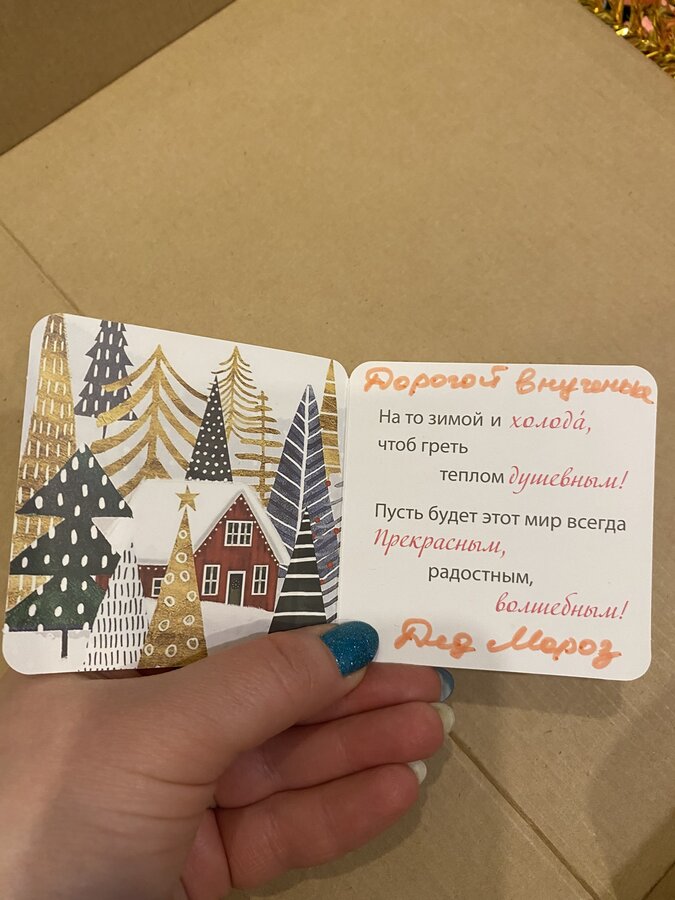 Дорогой внученьке
На то зимой и холода́,
чтоб греть
теплом душевным!
Пусть будет этот мир всегда
Прекрасным,
радостным,
волшебным!
Дед Мороз